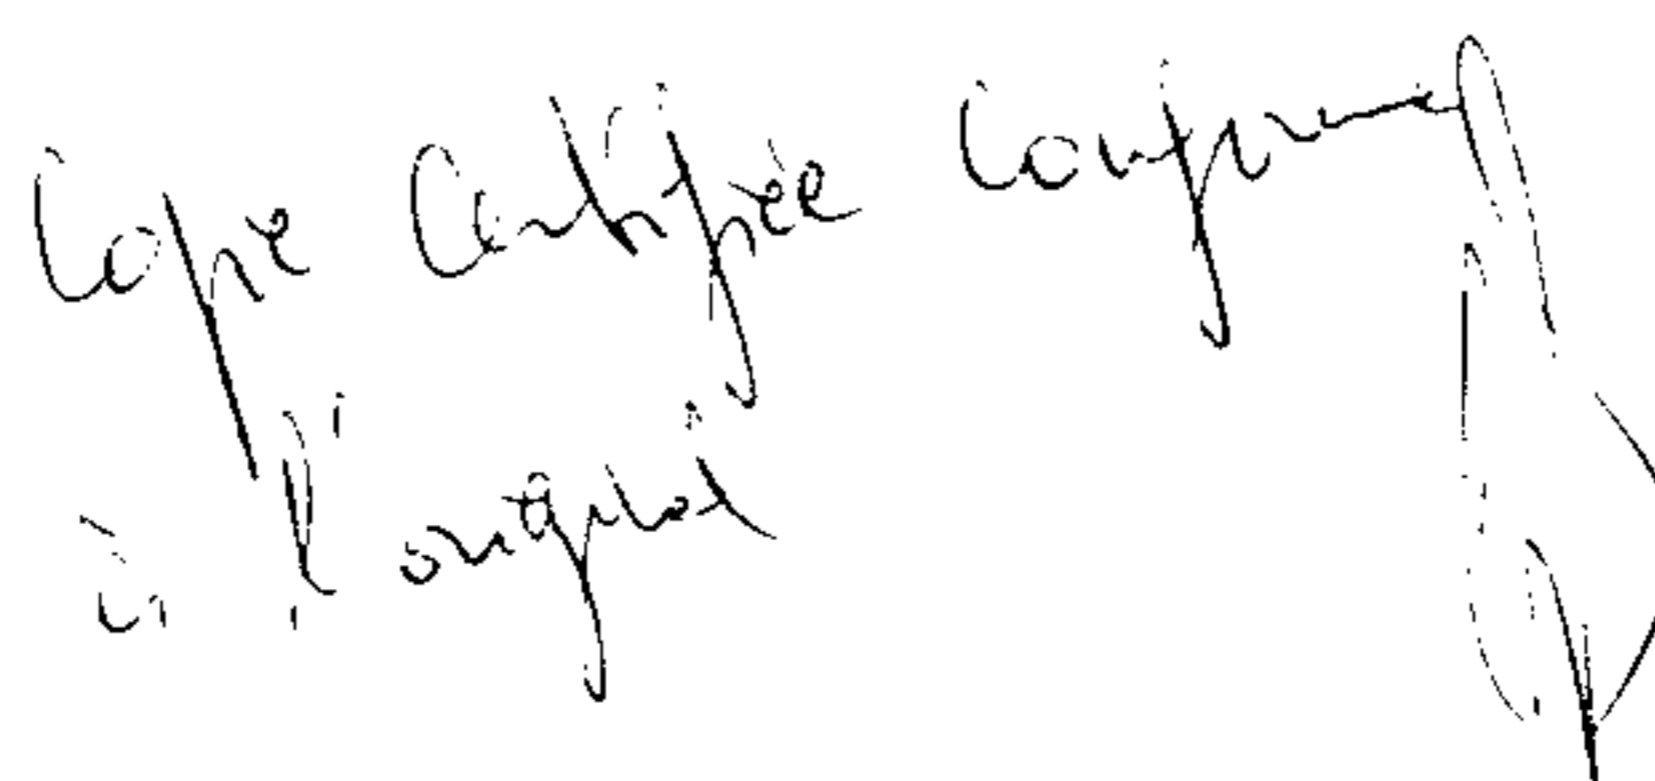 Copie Certifiée Conforme
à l'original